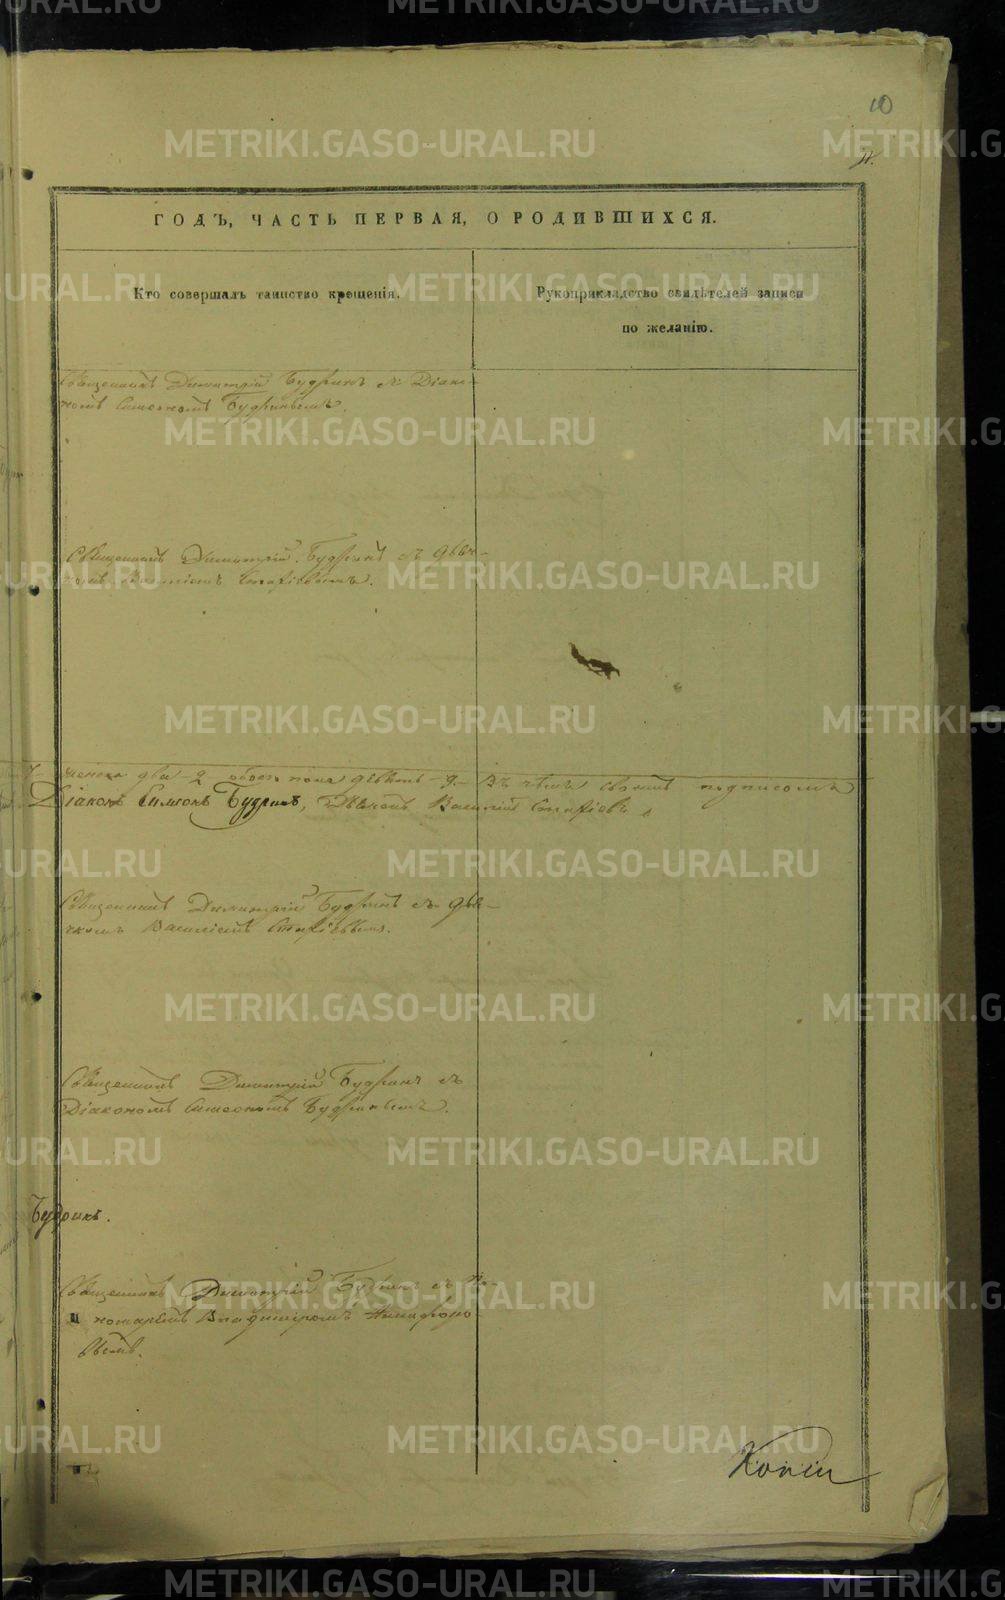 10
ГОДЪ, ЧАСТЬ ПЕРВАЯ, О РОДИВШИХСЯ.
Кто совершалъ таинство крещенія.
Рукоприкладство свидѣтелей записи
по желанію.
Священникъ Димитрій Будринъ съ Діако-
номъ Симеономъ Будринымъ.
Священникъ Димитрій Будринъ съ дьяч-
комъ Василіемъ
два - 2 обоего пола девять - 9. Въ чемъ подписомъ
Діаконъ Симеонъ Будринъ, Василій
Священникъ Димитрій Будринъ съ дья-
чкомъ Василіемъ
Священникъ Димитрій Будринъ съ
Діакономъ Симеономъ Будринымъ.
Будринъ.
Священникъ Димитрій Будринъ съ По-
номаремъ Владиміромъ
вымъ.
Копіи
METRIKI.GASO-URAL.RU